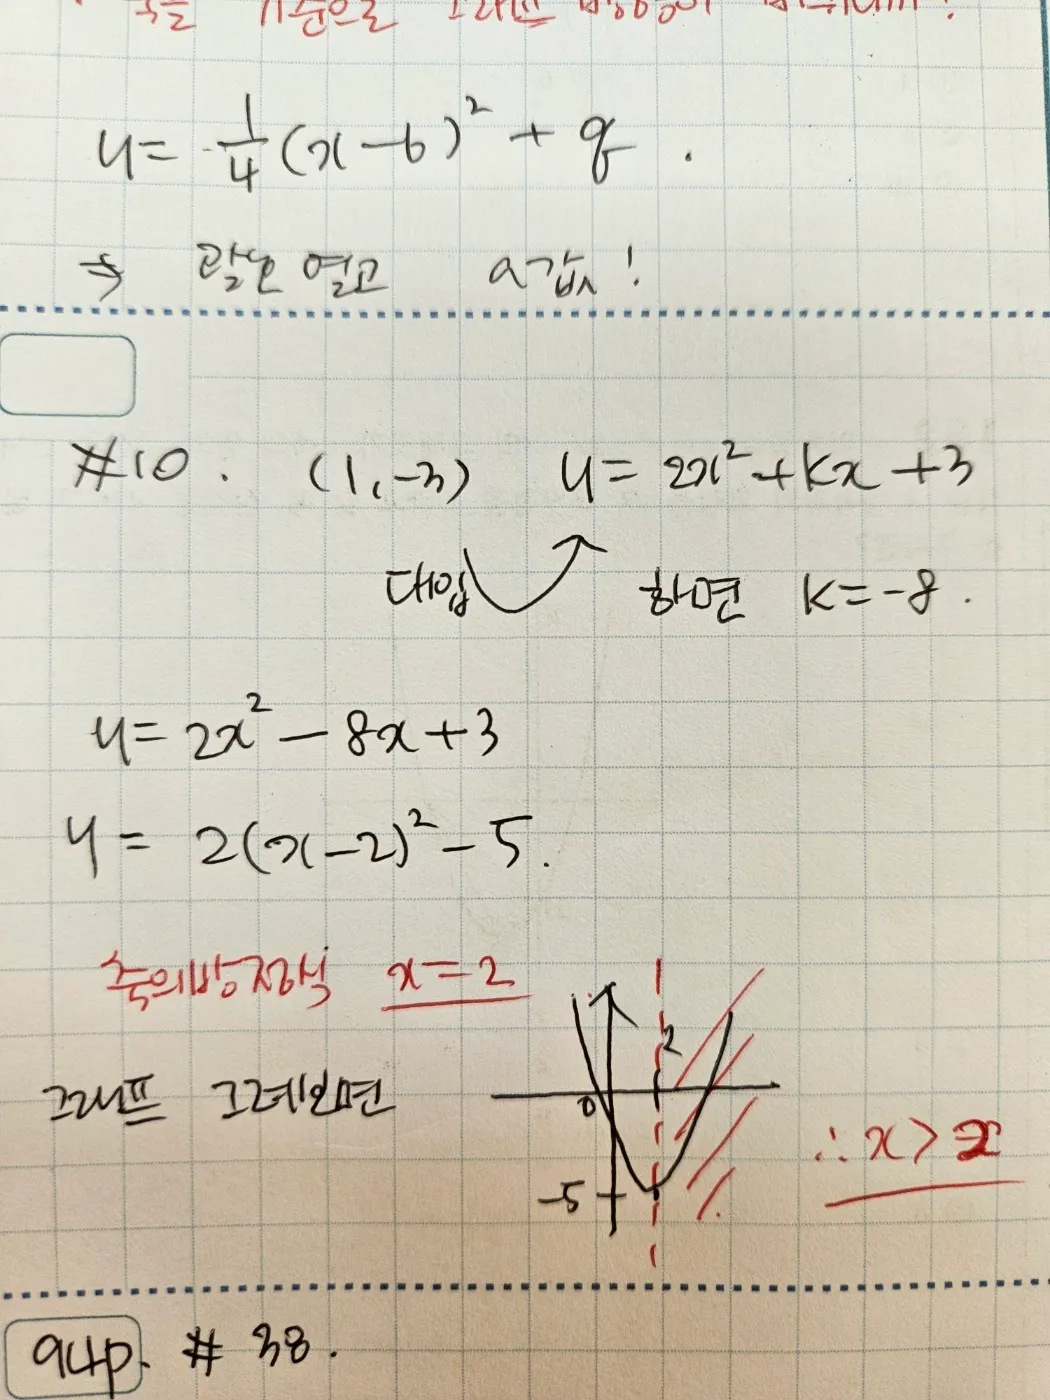 기준으로 그래프
y = -1/4(x-6)² + q .
⇒ 괄호 열고 a값!
#10. (1, -3) y = 2x² + kx + 3
대입 하면 k = -8 .
y = 2x² - 8x + 3
y = 2(x-2)² - 5.
축의방정식 x = 2
2
그래프 그려보면
0
∴ x > 2
-5
94p. # 38.